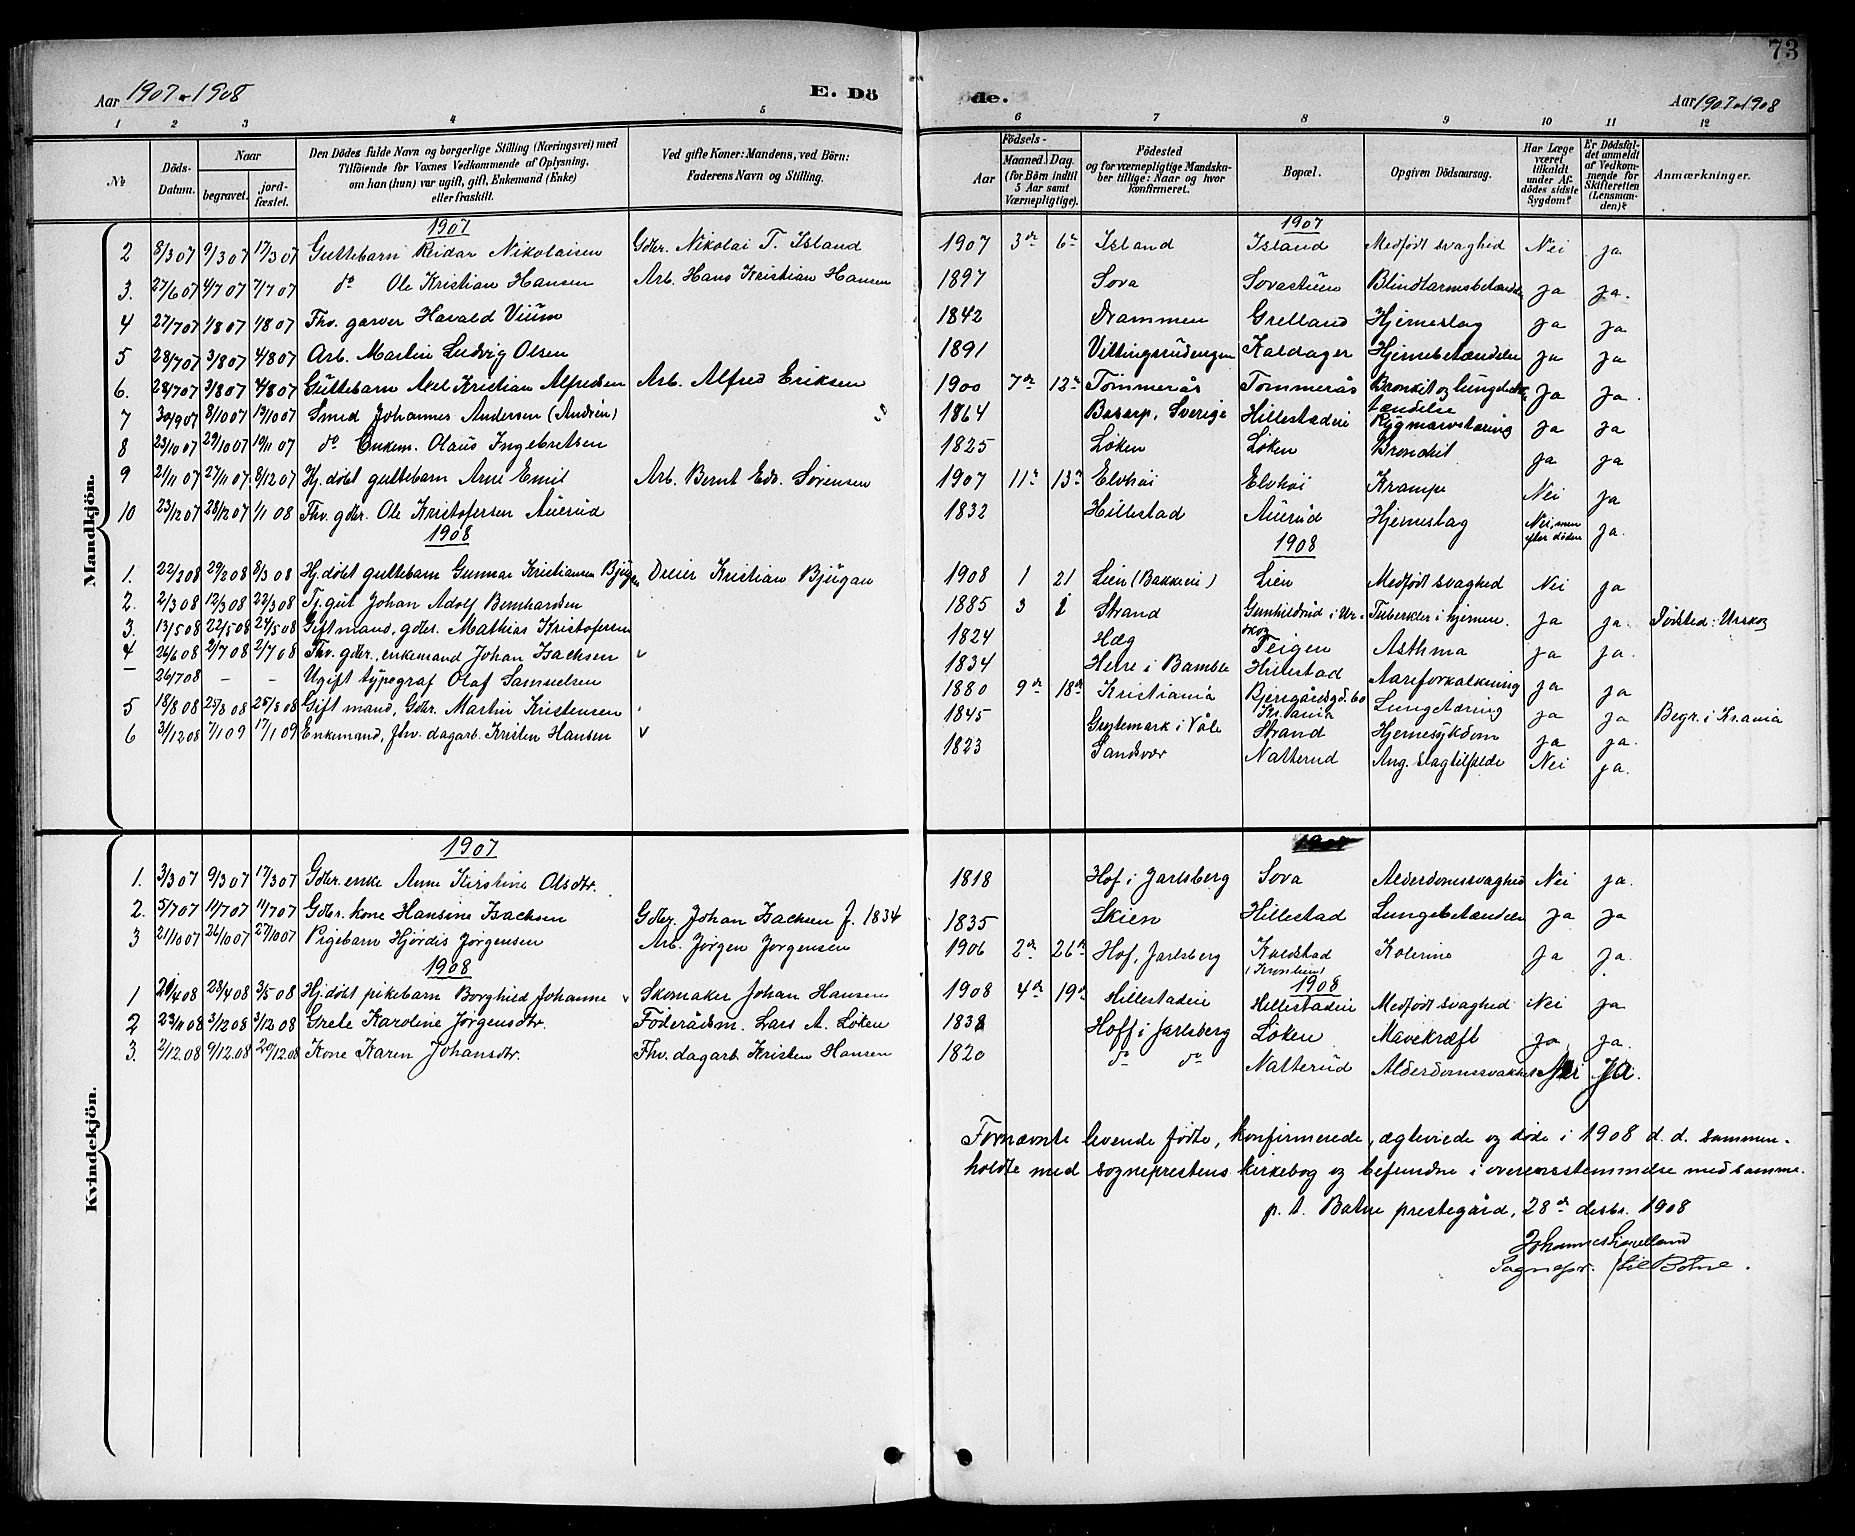 73
Aar 1907 & 1908 E. Dö de. Aar 1907 & 1908
1 2 3 4 5 6 7 8 9 10 11 12
№ Döds-Datum. Naar begravet. jord-fæstet. Den Dödes fulde Navn og borgerlige Stilling (Næringsvei) med Tilföiende for Voxnes Vedkommende af Oplysning, om han (hun) var ugift, gift, Enkemand (Enke) eller fraskilt. Ved gifte Koner: Mandens, ved Börn: Faderens Navn og Stilling. Födsels- Aar Maaned. Dag. (for Börn indtil 5 Aar samt Værnepligtige). Födested og for værnepligtige Mandskaber tillige: Naar og hvor konfirmeret. Bopæl. Opgiven Dödsaarsag. Har Læge været tilkaldt under Afdödes sidste Sygdom? Er Dödsfaldet anmeldt af Vedkommende for Skifteretten (Lensmanden)? Anmærkninger.
Mandkjön.
1907 1907
2 8/3 07 9/3 07 17/3 07 Guttebarn Reidar Nikolaisen Gdbr. Nikolai T. Island 1907 3de 6te Island Island Medfødt svaghed Nei ja
3. 27/6 07 4/7 07 7/7 07 do Ole Kristian Hansen Arb. Hans Kristian Hansen 1897 Sova Sovastuen Blindtarmsbetændelse ja ja.
4 27/7 07 1/8 07 1/8 07 Fhv. garver Harald Vium 1842 Drammen Grelland Hjerneslag ja ja
5 28/7 07 3/8 07 4/8 07 Arb. Martin Ludvig Olsen 1891 Vittingsrudengen Kaldager Hjernebetændelse ja ja
6. 28/7 07 3/8 07 4/8 07 Guttebarn Axel Kristian Alfredsen Arb. Alfred Eriksen 1900 7de 12te Tømmerås Tømmerås Bronkit og lungebetændelse ja ja.
7 30/9 07 8/10 07 13/10 07 Smed Johannes Andersen (Andrén) 1864 Bosarp, Sverige Hillestadeie Rygmarvstæring ja ja
8 23/10 07 29/10 07 10/11 07 do Enkem. Olaus Ingebretsen 1825 Løken Løken Bronchit ja ja
9 21/11 07 27/11 07 8/12 07 Hj. døbt guttebarn Arne Emil Arb. Bernt Edv. Sørensen 1907 11te 13de Elvhøi Elvhøi Krampe Nei ja
10 23/12 07 28/12 07 1/1 08 Fhv. gdbr. Ole Kristofersen Auerud 1832 Hillestad Auerud Hjerneslag Nei, men efter døden ja.
1908 1908
1. 22/2 08 29/2 08 8/3 08 Hj. døbt guttebarn Gunnar Kristiansen Bjugan Dreier Kristian Bjugan 1908 1 21 Lien (Bakkeeie) Lien Medfødt svaghed Nei ja
2. 2/3 08 12/3 08 22/3 08 Tj. gut Johan Adolf Bernhardsen 1885 3 1 Strand Gunhildrud i Urskog Tuberkler i hjernen. ja ja. Dødsted: Urskog
3. 13/5 08 22/5 08 24/5 08 Gift mand, gdbr. Mathias Kristofersen 1824 Hæg Teigen Asthma ja ja.
4 26/6 08 2/7 08 2/7 08 Fhv. gdbr., enkemand Johan Isachsen 1834 Herre i Bamble Hillestad Aareforkalkning ja ja
– 26/7 08 – – Ugift typograf Olaf Samuelsen 1880 9de 18de Kristiania Bjerregårdsgd. 60 Kr.ania Lungetæring ja ja Begr. i Krania
5 18/8 08 25/8 08 25/8 08 Gift mand, Gdbr. Martin Kristensen 1845 Grytemark i Våle Strand Hjernesykdom ja ja.
6 31/12 08 7/1 09 17/1 09 Enkemand, fhv. dagarb. Kristen Hansen 1823 Sandsvær Natterud Ang. slagtilfælde Nei ja.
Kvindekjön.
1907
1. 3/3 07 9/3 07 17/3 07 Gdbr. enke Anne Kirstine Olsdtr. 1818 Hof i Jarlsberg Sova Alderdomssvaghed Nei ja.
2. 5/7 07 11/7 07 11/7 07 Gdbr. kone Hansine Isachsen Gdbr. Johan Isachsen f. 1834 1835 Skien Hillestad Lungebetændelse ja ja
3 21/10 07 26/10 07 27/10 07 Pigebarn Hjørdis Jørgensen Arb. Jørgen Jørgensen 1906 2de 26de Hof, Jarlsberg Koldstad Kolerine ja ja.
1908 1908
1 20/4 08 28/4 08 3/5 08 Hj. døbt pikebarn Borghild Johanne Skomaker Johan Hansen 1908 4de 19de Hillestadeie Hillestadeie Medfødt svaghed Nei ja
2 23/11 08 3/12 08 3/12 08 Grete Karoline Jørgensdtr. Føderådsm. Lars A. Løken Hoff i Jarlsberg Løken Mavekræft ja ja.
3. 2/12 08 9/12 08 20/12 08 Kone Karen Johansdtr. Fhv. dagarb. Kristen Hansen 1820 do do Natterud Alderdomssvakhet Nei Ja.
Fornævnte levende fødte, konfirmerede, ægteviede og døde i 1908 d. d. sammen-
holdte med sogneprestens kirkebog og befundne i overensstemmelse med samme.
p. t. Botne prestegård, 28de desbr. 1908
Johannes
Sognepr. til Botne.